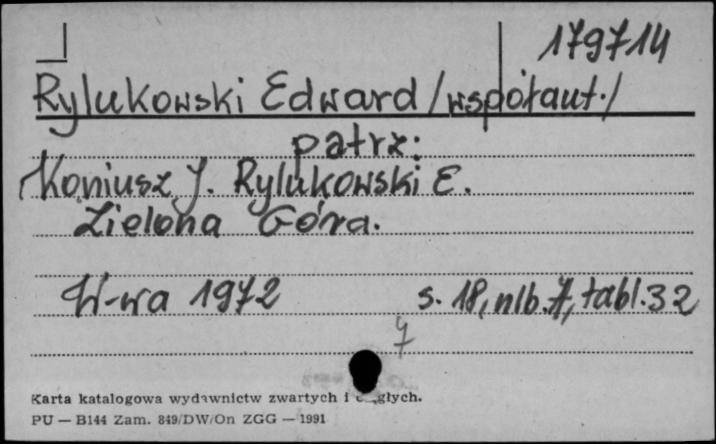 179714
Rylukowski Edward /współaut./
patrz:
Koniusz J. Rylukowski E.
Zielona Góra.
W-wa 1972 s. 18, nlb. 7, tabl. 32
7
Karta katalogowa wydawnictw zwartych i
PU — B144 Zam. 849/DW/On ZGG — 1991